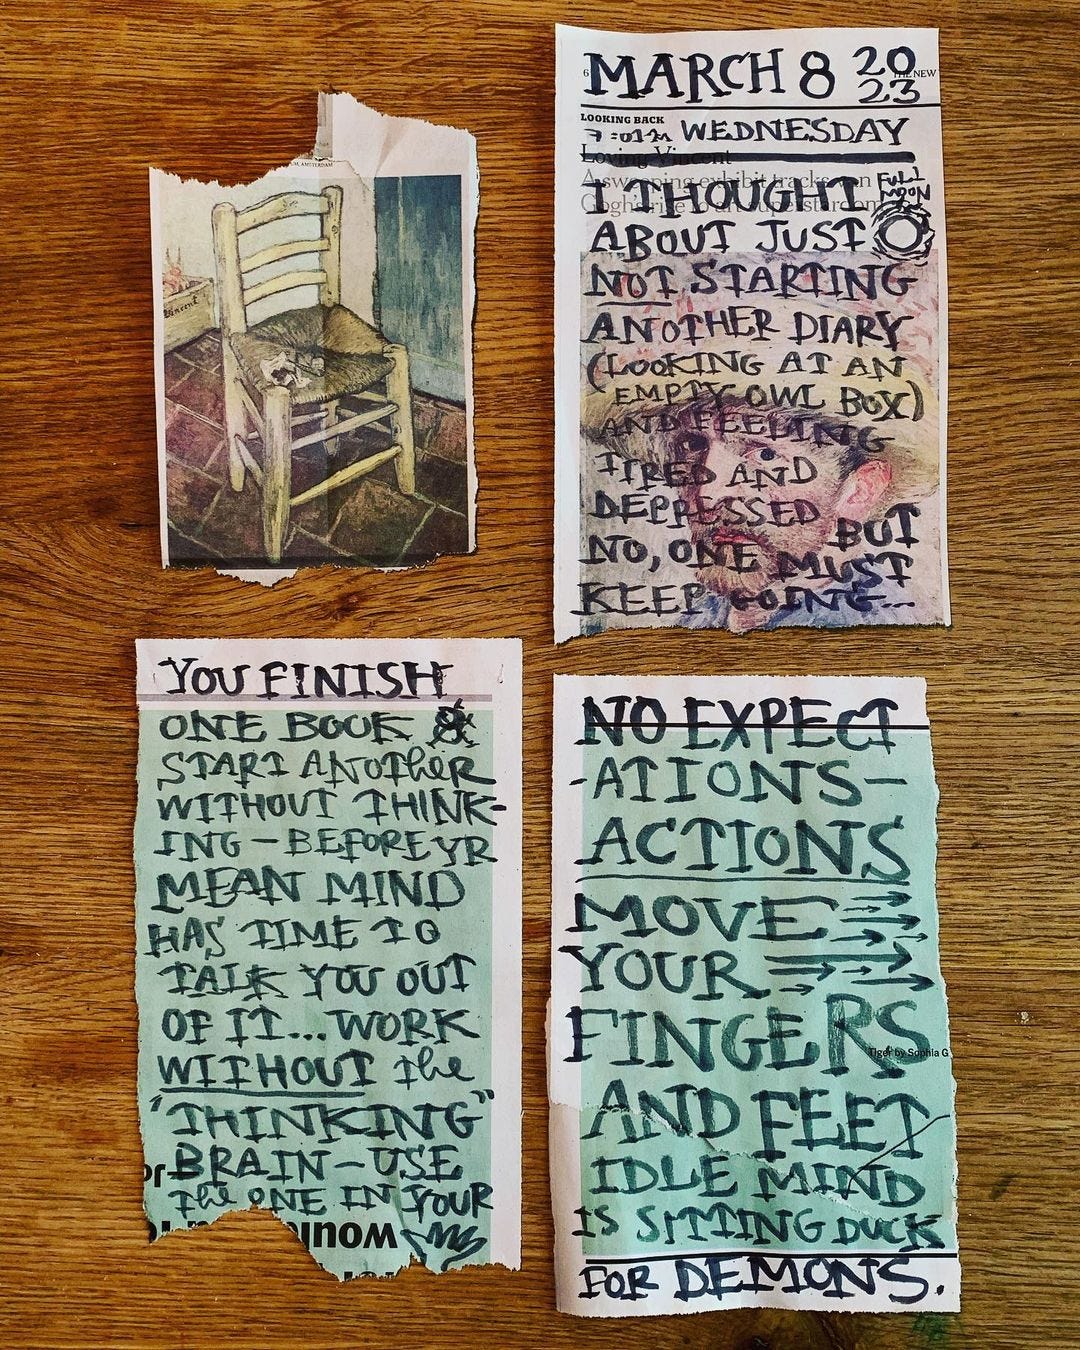 M, AMSTERDAM
Vincent
6 THE NEW
MARCH 8 20
23
LOOKING BACK
WEDNESDAY
Loving Vincent
A sweeping exhibit tracks van
Gogh's rise to art superstardom
I THOUGHT FULL MOON
ABOUT JUST
NOT STARTING
ANOTHER DIARY
(LOOKING AT AN
EMPTY OWL BOX)
AND FEELING
TIRED AND
DEPRESSED BUT
NO, ONE MUST
KEEP GOING...
YOU FINISH
ONE BOOK &
START ANOTHER
WITHOUT THINK-
ING - BEFORE YR
MEAN MIND
HAS TIME TO
TALK YOU OUT
OF IT... WORK
WITHOUT the
"THINKING"
BRAIN - USE
the ONE IN YOUR
would
NO EXPECT
-ATIONS-
ACTIONS
MOVE
YOUR
FINGERS
Tiger by Sophia G
AND FEET
IDLE MIND
IS SITTING DUCK
FOR DEMONS.